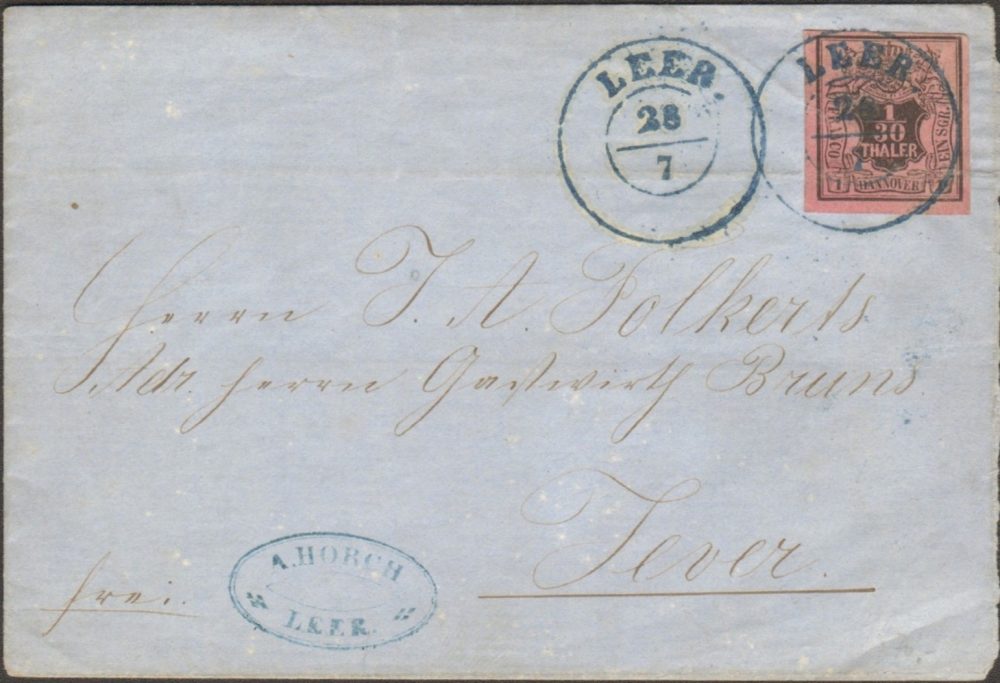 LEER.
28
7
LEER.
28
7
1
30
THALER
EIN SGR.
HANNOVER
1
Herrn J. A. Folkerts
Adr. Herrn Gastwirth Bruns
Jever.
frei.
A. HORCH
LEER.